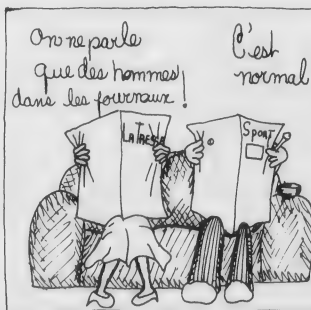 On ne parle
que des hommes
dans les journaux !
C'est
normal
LA PRESSE
SPORT